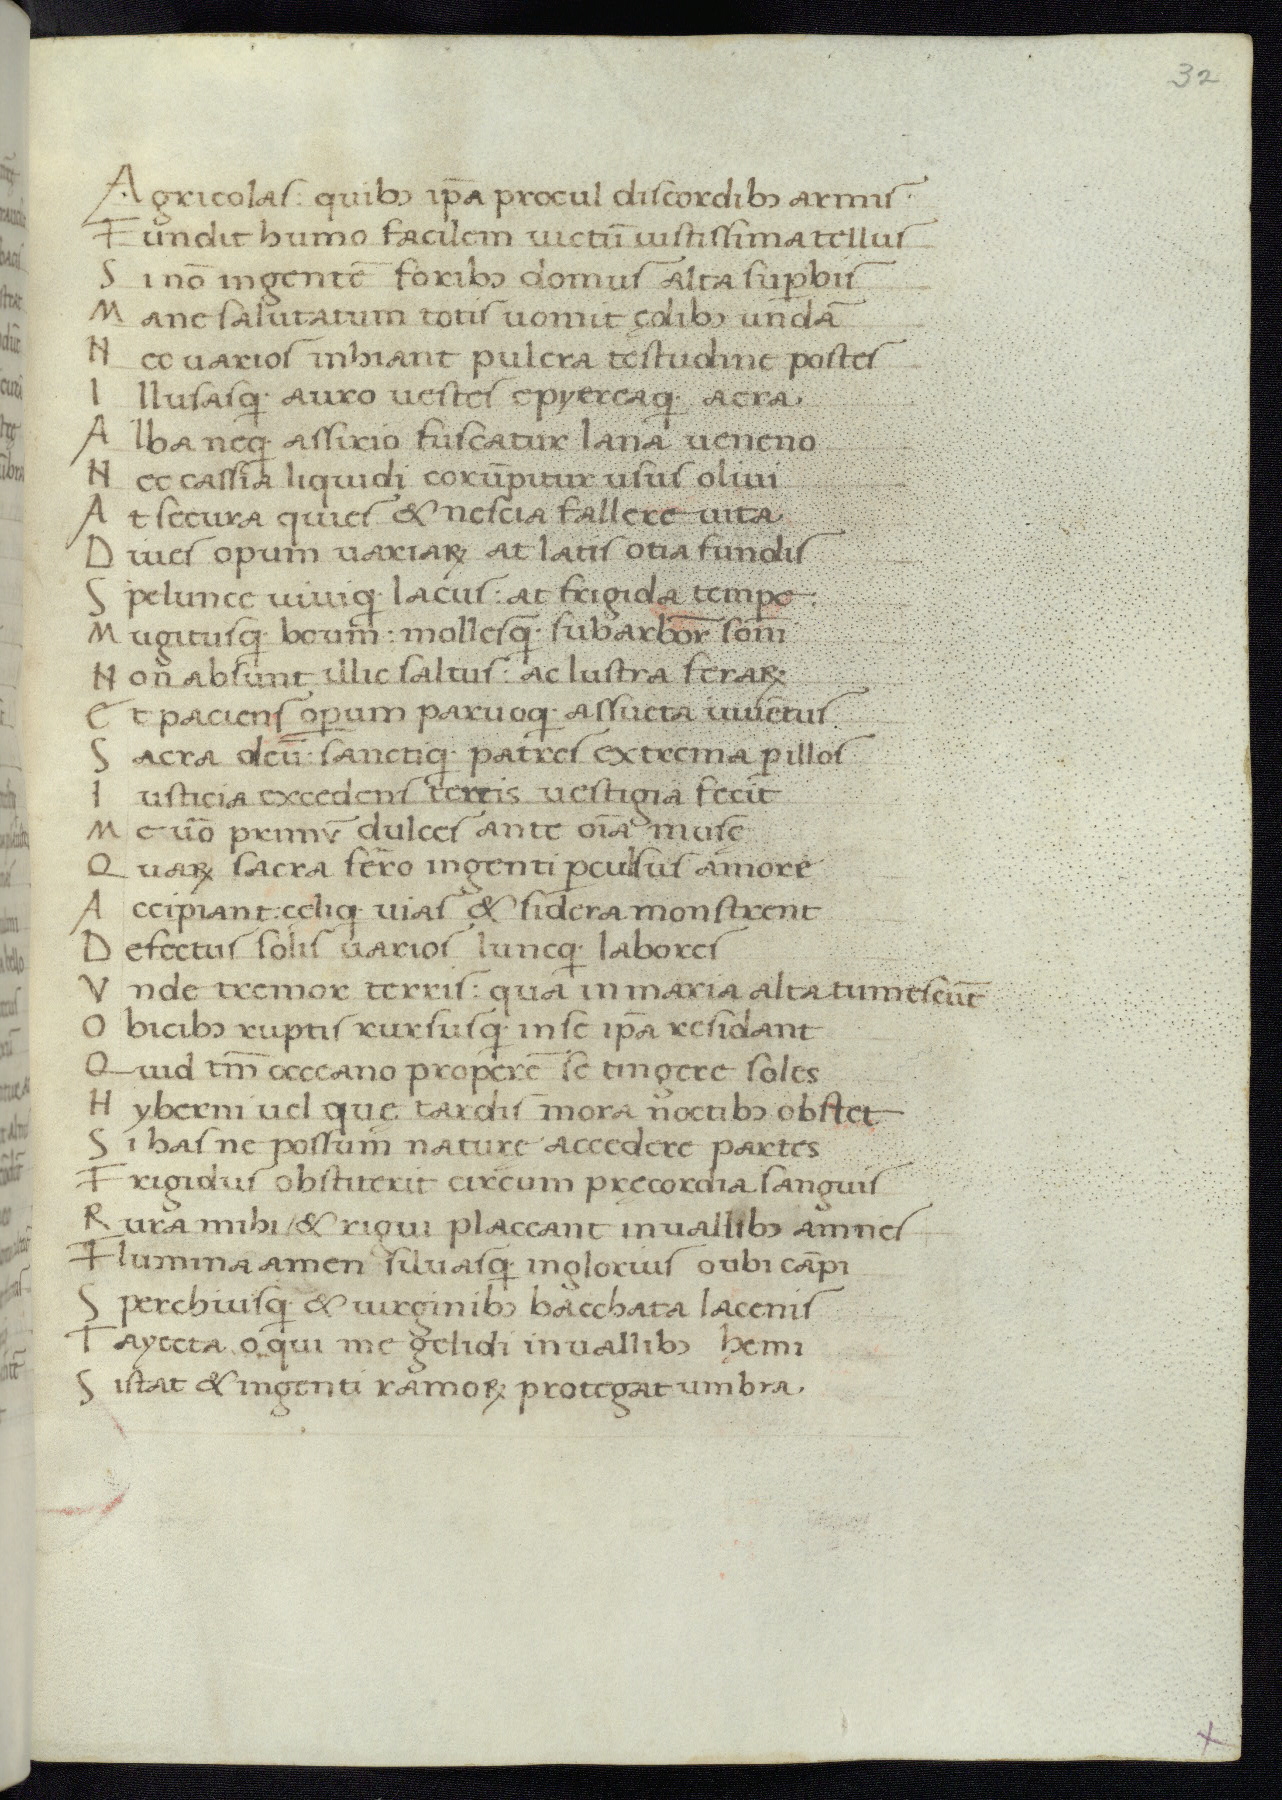 32
Agricolas: quibꝫ ip̄a procul discordibꝫ armis
Fundit humo facilem uictū iustissima tellus
Si nō ingentē foribꝫ domus alta sup̱bis
Mane salutatum totis uomit ędibꝫ undā
Nec uarios inhiant pulcra testudine postes
Illusasq̨ auro uestes epyereaq̨ aera.
Alba neq̨ assirio fuscatur lana ueneno
Nec cassia liquidi corūpitur usus oliui
At secura quies & nescia fallere uita
Diues opum uariaꝝ at latis otia fundis
Spelunce uiuiq̨ lacus: at frigida tempe:
Mugitusq̨ boum: mollesq̨ sub arbor̄ som̄
Non absunt illic saltus: ac lustra feraꝝ
Et paciens operum paruoq̨ assueta iuuētus
Sacra deū: sanctiq̨ patres extrema p̱ illos
Iusticia excedens terris uestigia fecit
Me uō primū dulces ante oīa musę
Quaꝝ sacra fero ingenti p̱culsus amore
Accipiant: cęliq̨ uias & sidera monstrent
Defectus solis uarios luneq̨ labores
Vnde tremor terris: qua in maria alta tumescūt
Obicibꝫ ruptis rursusq̨ in se ip̄a residant
Quid tm̄ occeano properē se tingere soles
Hyberni uel quę tardis mora noctibꝫ obstet
Si has ne possum naturę accedere partes
Frigidus obstiterit circum pręcordia sanguis
Rura mihi / & rigui placeant in uallibꝫ amnes
Flumina amen siluasq̨ inglorius o ubi cāpi
Sperchiusq̨ & uirginibꝫ bacchata lacenis
Tayceta o qui me gelidi in uallibꝫ hemi
Sistat & ingenti ramoꝝ protegat umbra.